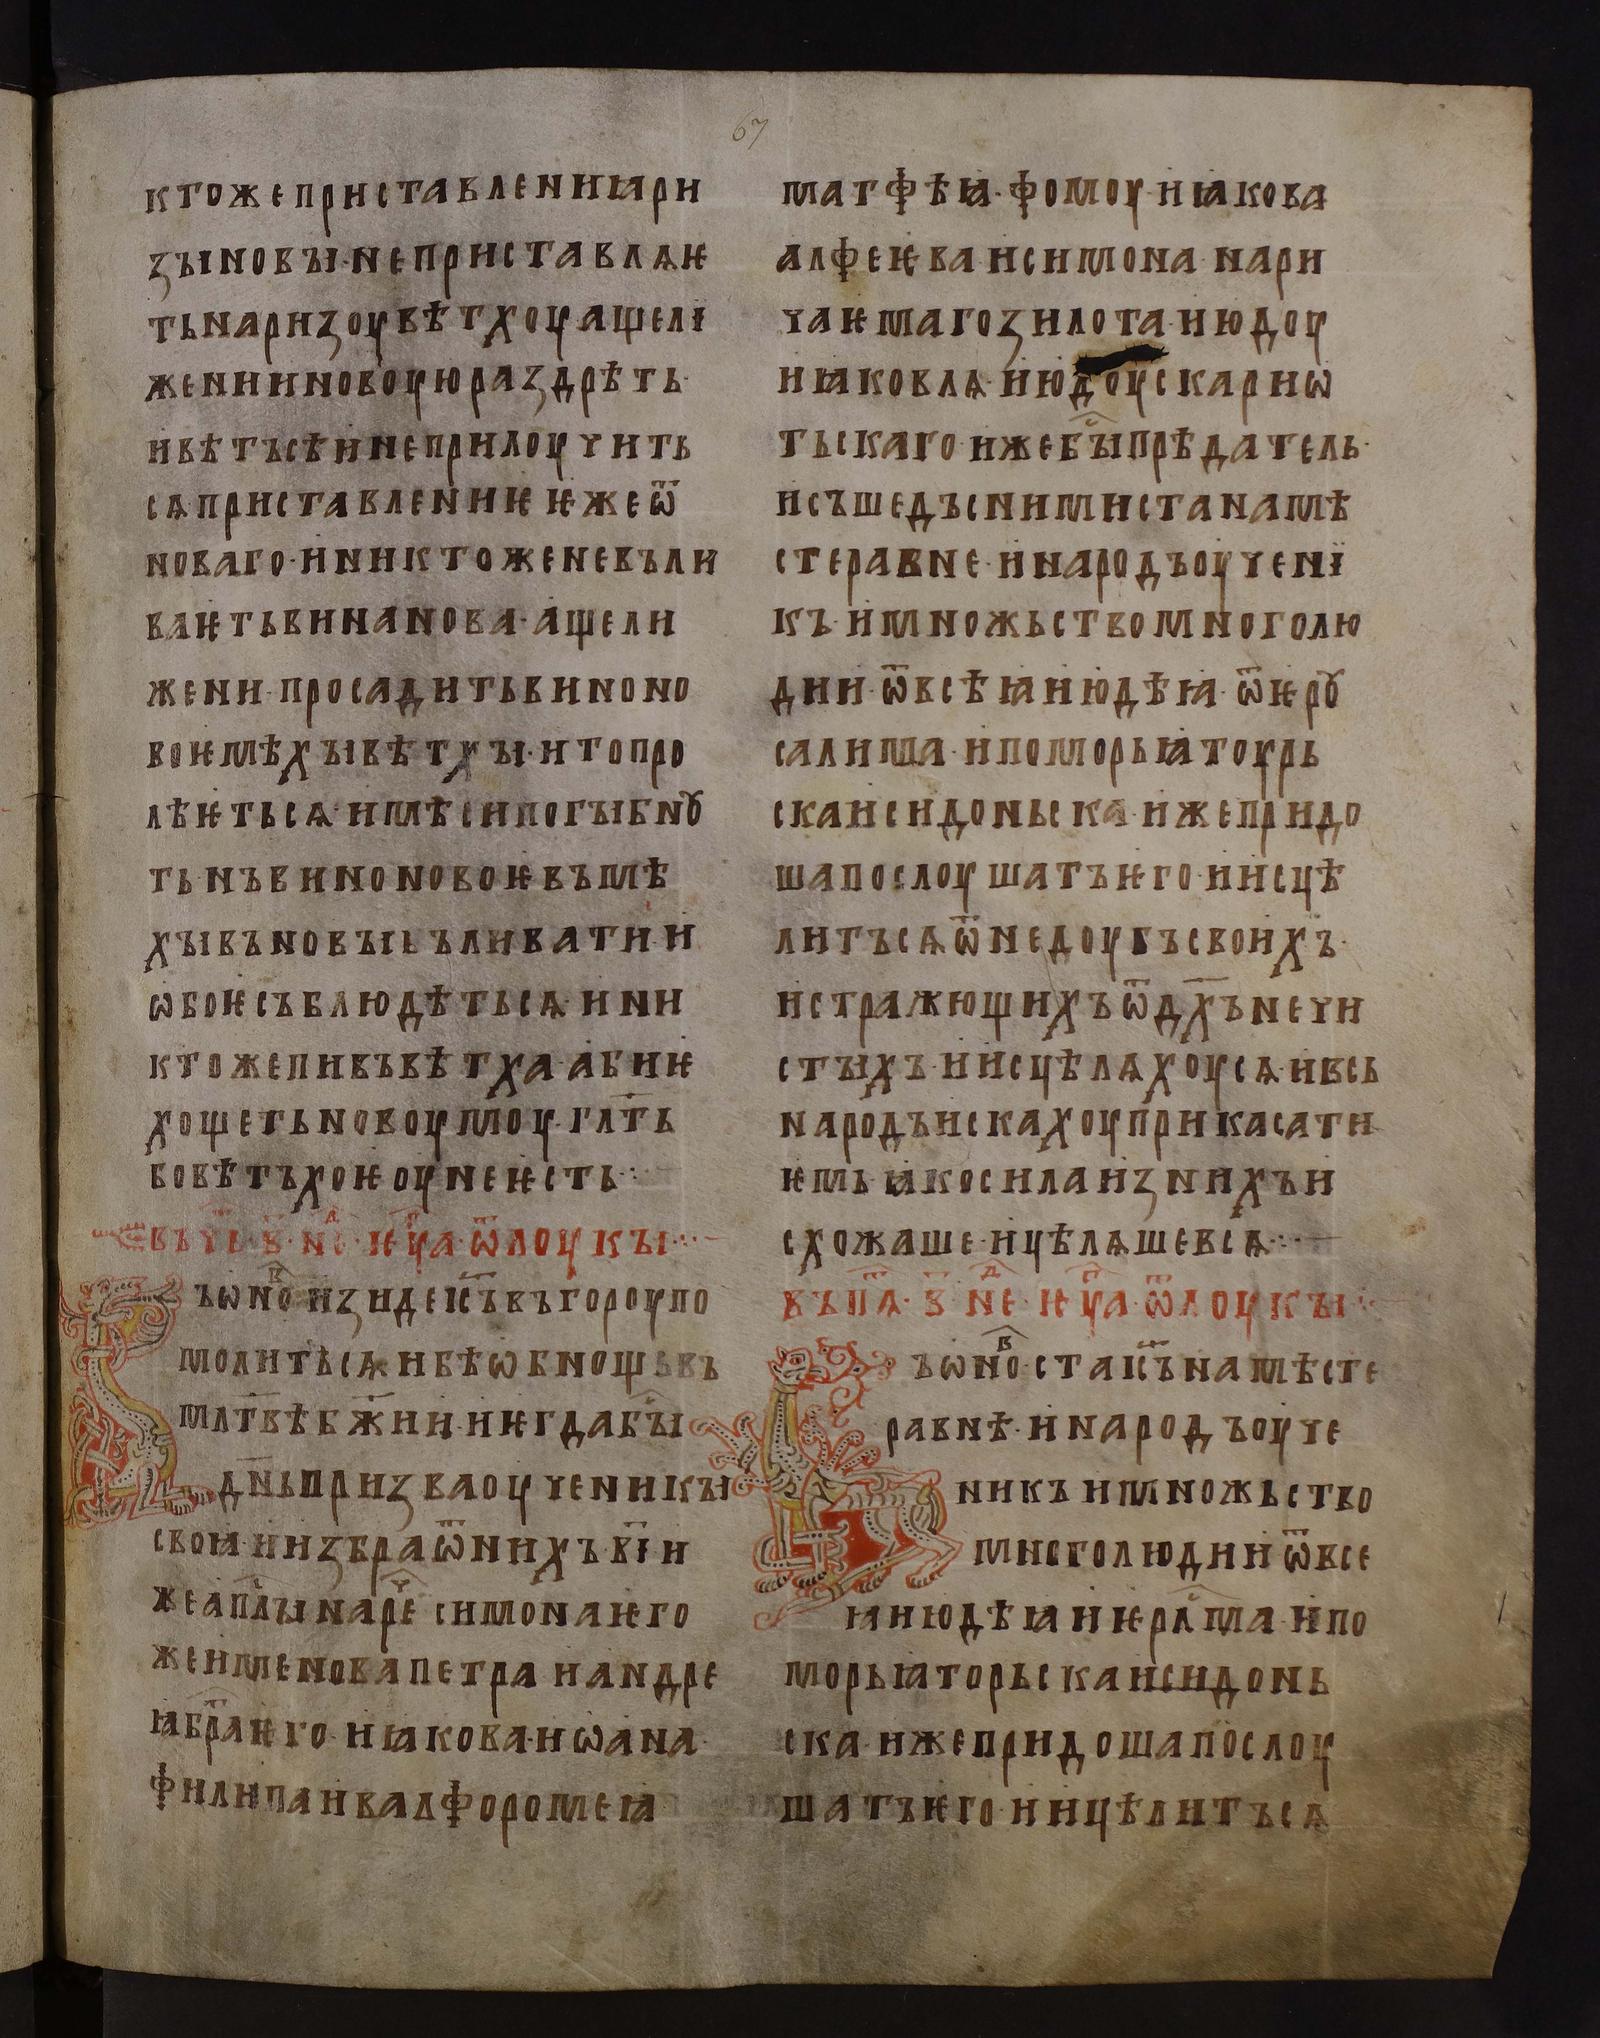 67
ктожеприставлениꙗри
ꙁꙑновꙑ·неприставлѧѥ
тьнариꙁоувѣтхоуащелі
жениновоуюраꙁдрѣть·
ивѣтъсѣинеприлоучить
сѧприставлениѥѥжеѿ
новаго·иниктоженевъли
ваѥтьвинанова·ащели
жени·просадитьвиноно
воѥмѣхꙑвѣтхꙑ·итопро
лѣѥтьсѧ·имѣсипогꙑбнꙋ
ть·нъвиноновоѥвъмѣ
хꙑвъновꙑвъливати·и
ѡбоѥсъблюдѣтьсѧ·ини
ктожепивъвѣтха·абиѥ
хощетьновоумоу·гл҃ть
бовѣтъхоѥоунеѥсть·:
въчⷭ҇·в҃·нⷣе·ѥуⷢ҇а·ѿлоукꙑ·:
ъѡноⷡ҇иꙁидеіс҃ъвъгороупо
молитьсѧибѣѡбнощьвъ
мл҃твѣбж҃ии·иѥгдабꙑⷭ҇
дн҃ьприꙁваоученикꙑ
своꙗ·ииꙁбраѿнихъ·в҃і·и
жеап҃лꙑнареⷱ҇симонаѥго
жеименовапетра·иандре
ꙗбра҃таѥго·иꙗкова·иѡана
филипаивалфоромеꙗ
матфѣꙗ·фомоу·иꙗкова
алфеѥва·исимона·нари
чаѥмагоꙁилота·июдоу
иꙗковлѧ·июдоускариѡ
тьскаго·ижебꙑⷭ҇прѣдатель·
исъшедъснимистанамѣ
стеравне·инародъоученї
къ·имножьствомноголю
дии·ѿвсѣꙗиюдѣꙗ·ѿѥрꙋ
салима·ипоморьꙗтоурь
скаисидоньска·ижепридо
шапослоушатъѥго·иисцѣ
литъсѧѿнедоугъсвоихъ·
истражющихъѿдх҃ънечи
стꙑхъ·иисцѣлѧхоусѧ·ивсь
народъискахоуприкасати
ѥмь·ꙗкосилаиꙁнихъи
схожаше·ицѣлѧшевсѧ·:
въпѧⷮ·в҃·неⷣ·ѥуⷢ҇а·ѿлоукꙑ·:
ъѡноⷡ҇·стаіс҃ънамѣсте
равнѣ·инародъоуче
никъимножьство
многолюдииѿвсе
ꙗиюдѣꙗиѥрⷭ҇лма·ипо
морьꙗторьскаисидонь
ска·ижепридошапослоу
шатъѥго·иицѣлитъсѧ